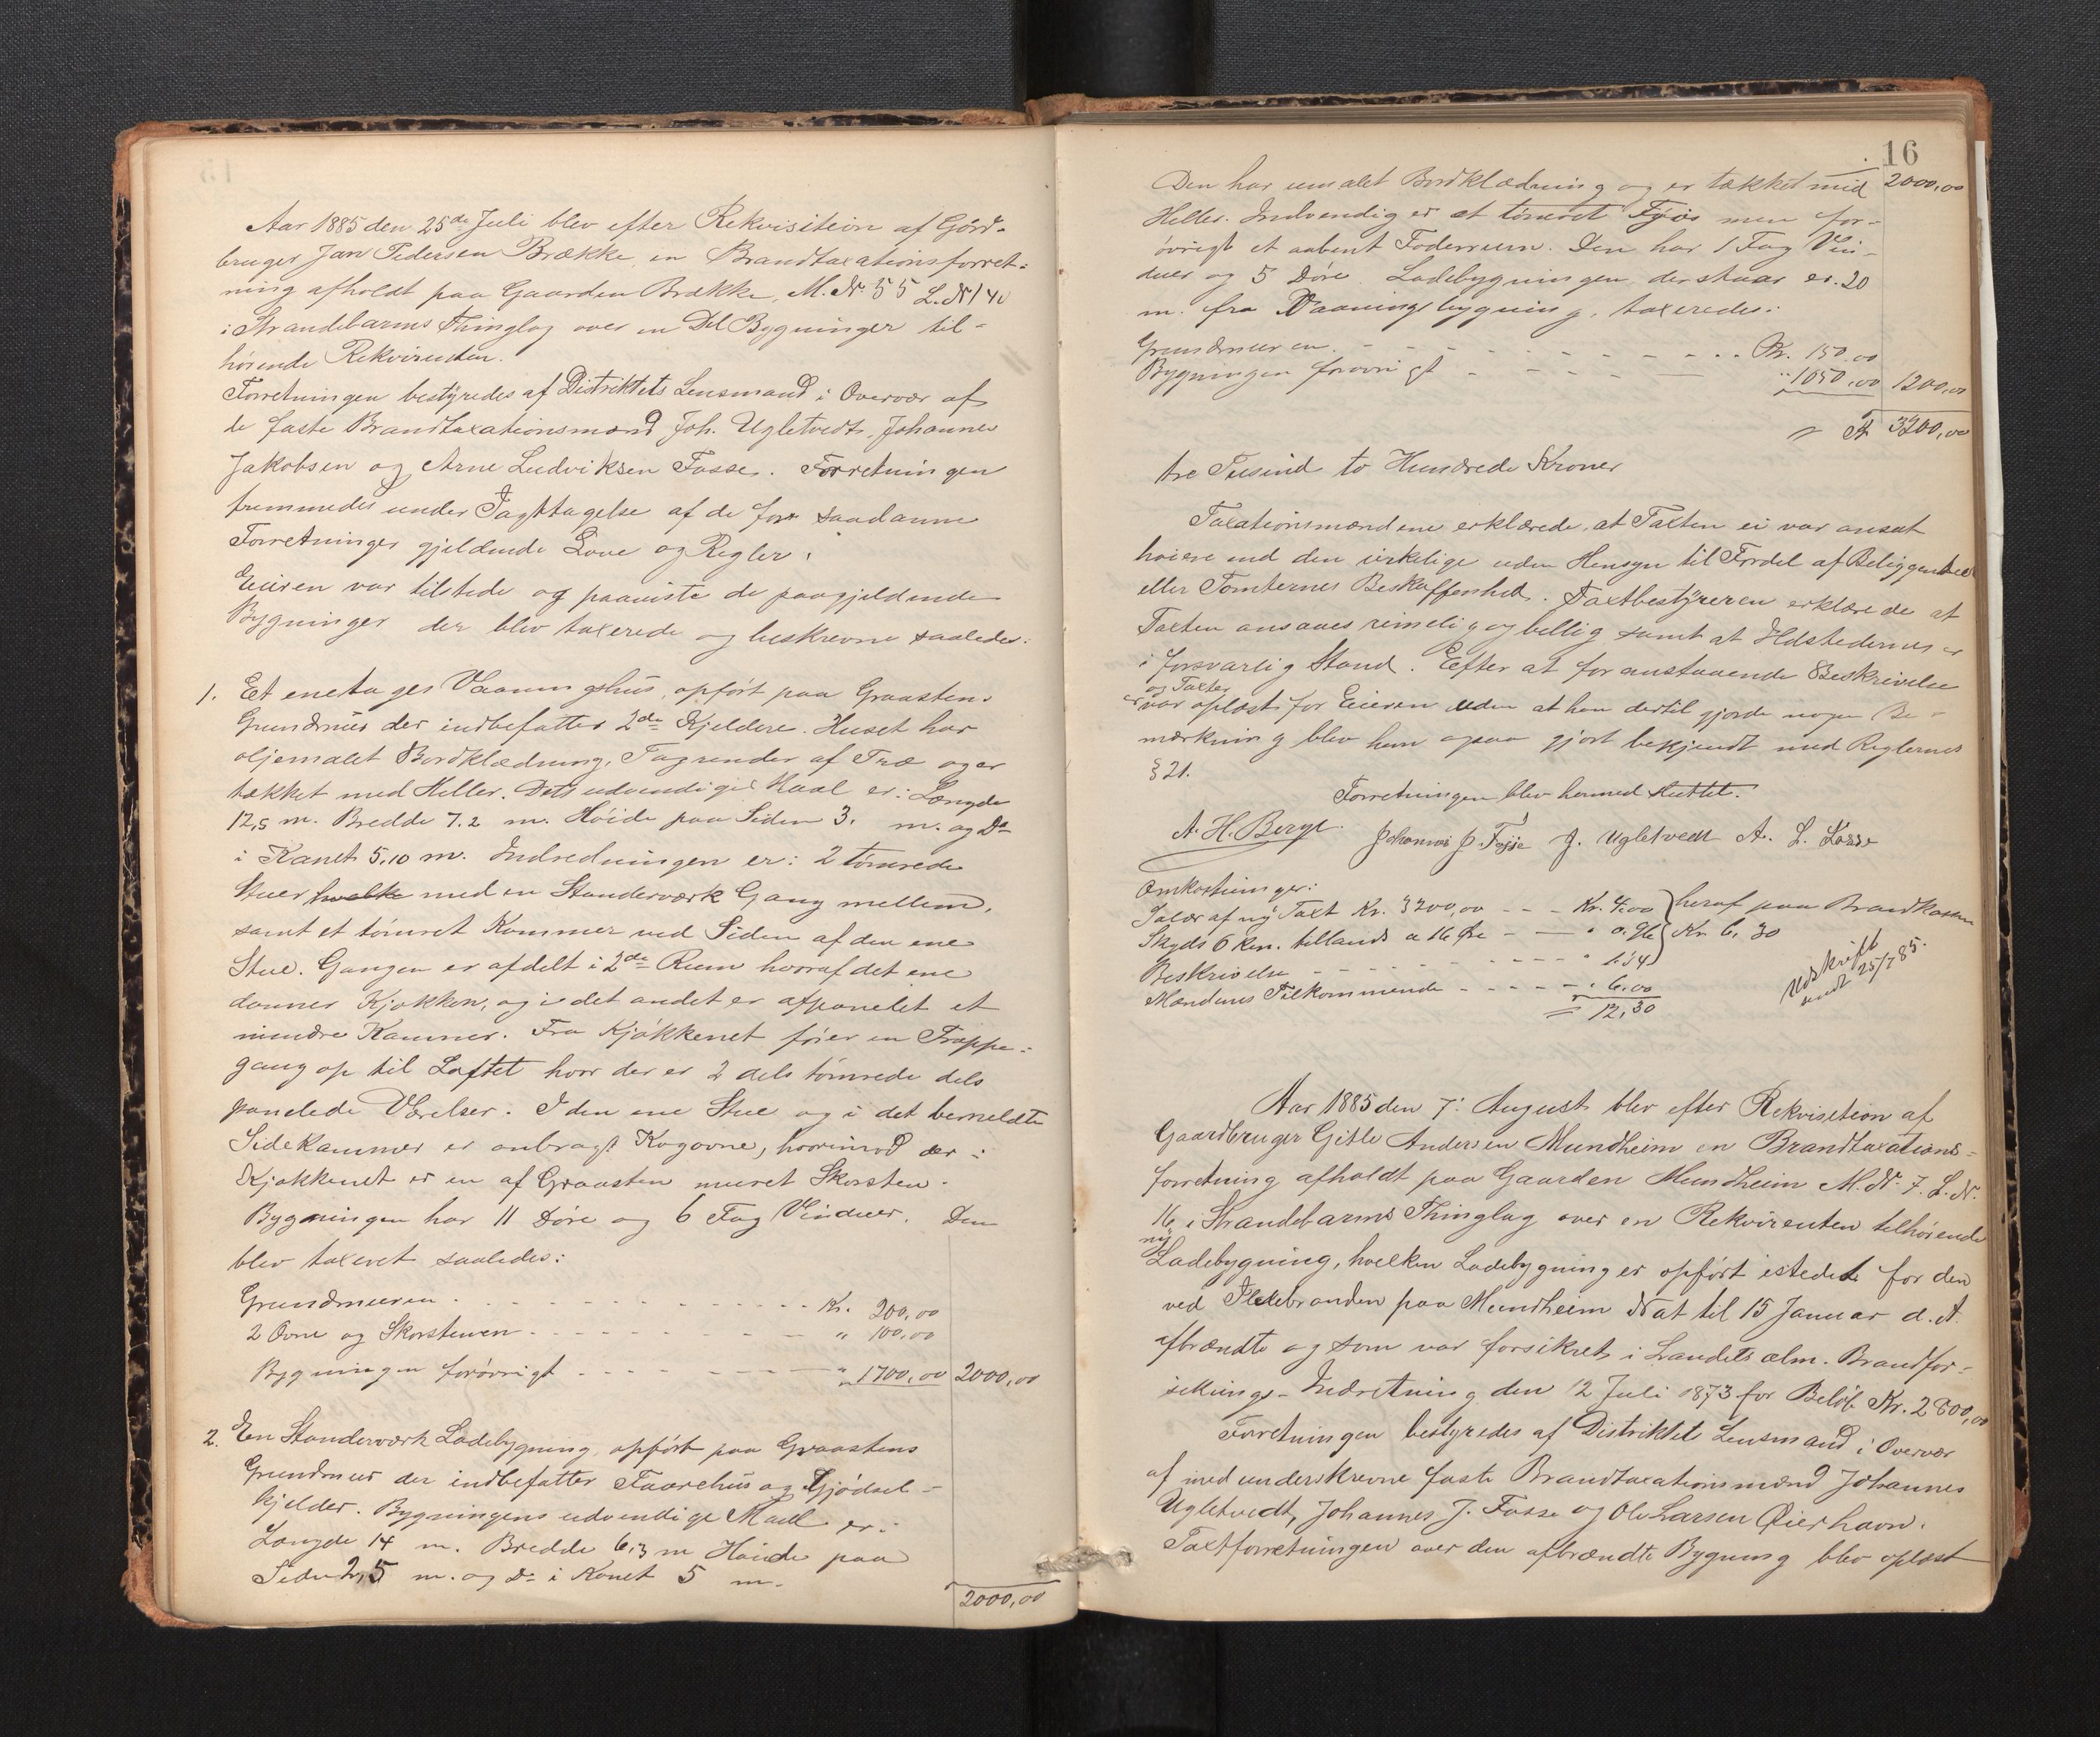 Aar 1885 den 25de Juli blev efter Rekvisition af Gård-
bruger Jan Pedersen Brække en Brandtaxationsforret-
ning afholdt paa Gaarden Brække, M. N. 55 L. N. 140
i Strandebarms Thinglag over en Del Bygninger til-
hørende Rekvirenten.
Forretningen bestyredes af Distriktets Lensmand i Overvær af
de faste Brandtaxationsmænd Joh. Ugletvedt, Johannes
Jakobsen og Arne Ludviksen Fosse. Forretningen
fremmedes under Iagttagelse af de for saadanne
Forretninger gjeldende Love og Regler.
Eieren var tilstede og paaviste de paagjeldende
Bygninger der blev taxerede og beskrevne saaledes:
1. Eet enetages Vaaningshus, opført paa Graastens
Grundmur der indbefatter 2de Kjeldere. Huset har
oljemalet Bordklædning, Tagrender af Træ og er
tækket med Heller. Dets udvendige Maal er: Længde
12,5 m. Bredde 7.2 m. Höide paa Siden 3. m. og Do
i Kanet 5,10 m. Indredningen er: 2 tömrede
Stuer hvælke med en Standerværk Gang mellem,
samt et tömret Kammer ved Siden af den ene
Stue. Gangen er afdelt i 2de Rum hvoraf det ene
danner Kjøkken, og i det andet er afpanelet et
mindre Kammer. Fra Kjökkenet föier en Trappe-
gang op til Loftet hvor der er 2 dels tömrede dels
panelede Værelser. I den ene Stue og i det bemeldte
Sidekammer er anbragt Kogovne, hvorimod der i
Kjøkkenet er en af Graasten muret Skorsten.
Bygningen har 11 Döre og 6 Fag Vinduer. Den
blev taxeret saaledes:
Grundmuren - - - Kr. 200,00
2 Ovne og Skorstenen - - - " 100,00
Bygningen forövrigt - - - " 1700,00 2000,00
2. En Standerværk Ladebygning, opført paa Graastens
Grundmur der indbefatter Faarehus og Gjödsel-
kjelder. Bygningens udvendige Maal er:
Længde 14 m. Bredde 6,3 m Höide paa
Siden 2,5 m. og Do i Kanet 5 m.
2000,00
16
Den har umalet Bordklædning og er tækket med 2000,00
Heller. Indvendig er et tömret Fjös men for-
övrigt et aabent Foderrum. Den har 1 Fag Vin-
duer og 5 Döre. Ladebygningen der staar er. 20
m. fra Vaaningsbygning, taxeredes:
Grundmuren - - - Kr. 150,00
Bygningen forövrigt - - - " 1050,00 1200,00
= Kr 3200,00
tre Tusind to Hundrede Kroner
Taxationsmændene erklærede, at Taxten ei var ansat
höiere end den virkelige uden Hensyn til Fordel af Beliggenhed
eller Tomternes Beskaffenhed. Taxtbestyreren erklærede at
Taxten ansaaes rimelig og billig samt at Ildstederne er
i forsvarlig Stand. Efter at foranstaaende Beskrivelse
og Taxter
var oplæst for Eieren uden at han dertil gjorde nogen Be-
mærkning blev han ogsaa gjort bekjendt med Reglernes
§ 21.
Forretningen blev hermed sluttet.
A. H. Berge. Johannes J. Fosse J. Ugletvedt A. L. Fosse
Omkostninger:
Salær af ny Taxt Kr. 3200,00 - - - Kr. 4,00 } heraf paa Brandkassen
Skyds 6 km. tillands a 16 Öre - - - " 0.96 } Kr. 6,30
Beskrivelse - - - " 1.34 }
Mændenes Tilkommende - - - " 6,00
= 12,30
Udskrift
sendt 25/7 85.
Aar 1885 den 7. August blev efter Rekvisition af
Gaardbruger Gitle Andersen Mundheim en Brandtaxations-
forretning afholdt paa Gaarden Mundheim M. N. 7. L. N.
16 i Strandebarms Thinglag over en Rekvirenten tilhørende
ny
Ladebygning, hvilken Ladebygning er opført istedet for den
ved Ildebranden paa Mundheim Nat til 15 Januar d. A.
afbrændte og som var forsikret i Landets alm. Brandfor-
sikrings-Indretning den 12 Juli 1873 for Beløb Kr. 2800,00
Forretningen bestyredes af Distriktets Lensmand i Overvær
af med underskrevne faste Brandtaxationsmænd Johannes
Ugletvedt, Johannes J. Fosse og Ole Larsen Øierhavn.
Taxtforretningen over den afbrændte Bygning blev oplæst